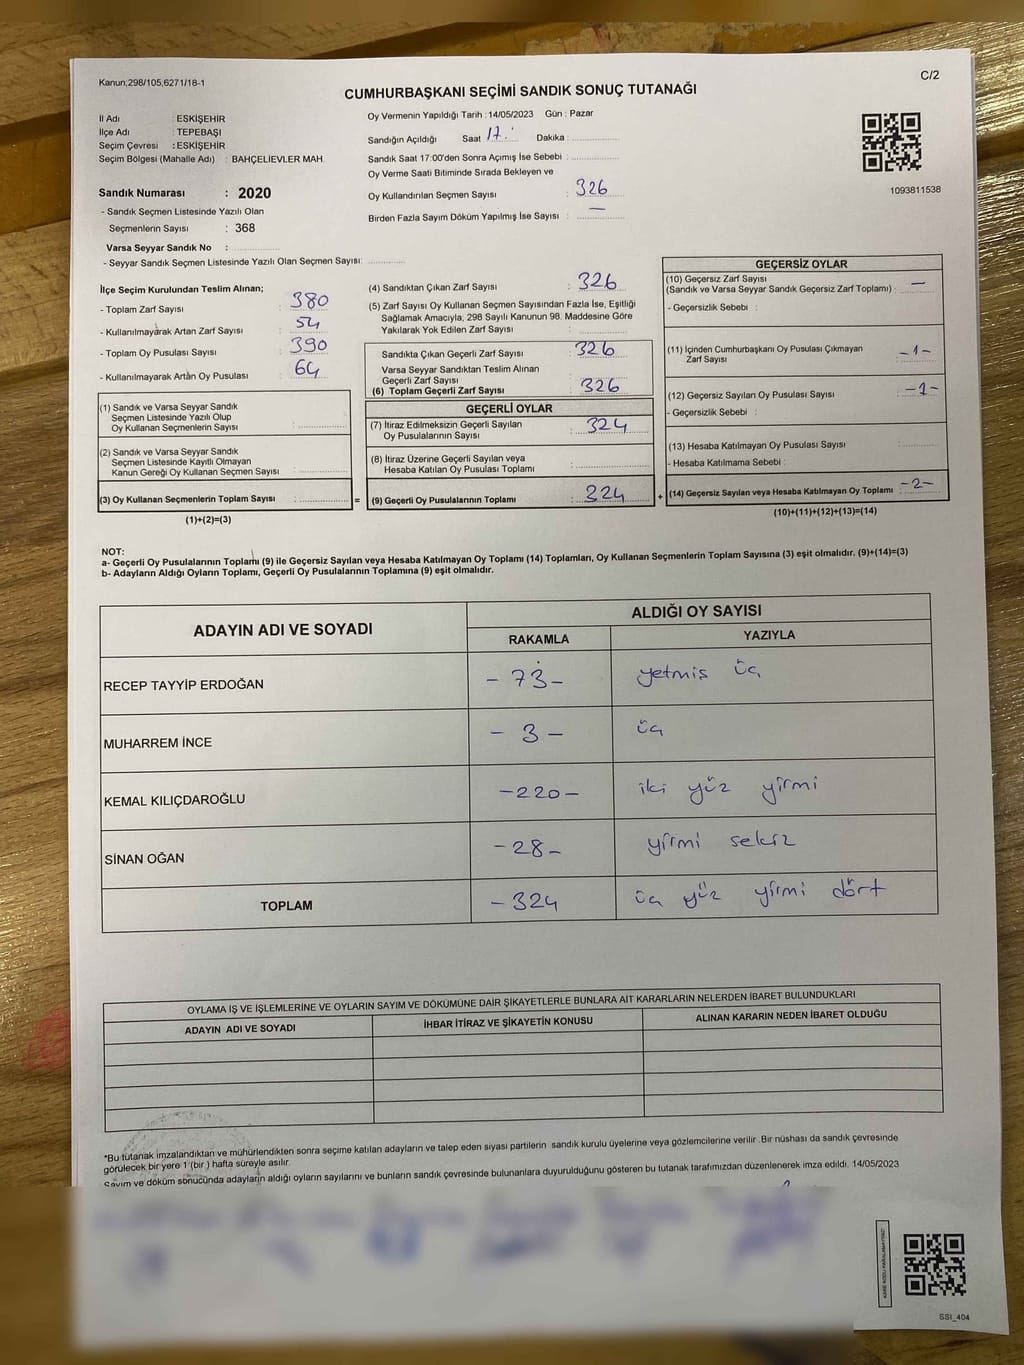 Kanun;298/105,6271/18-1
C/2
CUMHURBAŞKANI SEÇİMİ SANDIK SONUÇ TUTANAĞI
İl Adı : ESKİŞEHİR
İlçe Adı : TEPEBAŞI
Seçim Çevresi : ESKİŞEHİR
Seçim Bölgesi (Mahalle Adı) : BAHÇELİEVLER MAH.
Sandık Numarası : 2020
- Sandık Seçmen Listesinde Yazılı Olan
Seçmenlerin Sayısı : 368
Varsa Seyyar Sandık No :
- Seyyar Sandık Seçmen Listesinde Yazılı Olan Seçmen Sayısı:
Oy Vermenin Yapıldığı Tarih : 14/05/2023 Gün : Pazar
Sandığın Açıldığı Saat 17. Dakika :
Sandık Saat 17:00'den Sonra Açımış İse Sebebi :
Oy Verme Saati Bitiminde Sırada Bekleyen ve
Oy Kullandırılan Seçmen Sayısı : 326
Birden Fazla Sayım Döküm Yapılmış İse Sayısı : —
1093811538
İlçe Seçim Kurulundan Teslim Alınan;
- Toplam Zarf Sayısı : 380
- Kullanılmayarak Artan Zarf Sayısı : 54
- Toplam Oy Pusulası Sayısı : 390
- Kullanılmayarak Artan Oy Pusulası : 64
(1) Sandık ve Varsa Seyyar Sandık
Seçmen Listesinde Yazılı Olup
Oy Kullanan Seçmenlerin Sayısı :
(2) Sandık ve Varsa Seyyar Sandık
Seçmen Listesinde Kayıtlı Olmayan
Kanun Gereği Oy Kullanan Seçmen Sayısı :
(3) Oy Kullanan Seçmenlerin Toplam Sayısı : =
(1)+(2)=(3)
(4) Sandıktan Çıkan Zarf Sayısı : 326
(5) Zarf Sayısı Oy Kullanan Seçmen Sayısından Fazla İse, Eşitliği
Sağlamak Amacıyla, 298 Sayılı Kanunun 98. Maddesine Göre
Yakılarak Yok Edilen Zarf Sayısı :
Sandıkta Çıkan Geçerli Zarf Sayısı : 326
Varsa Seyyar Sandıktan Teslim Alınan
Geçerli Zarf Sayısı :
(6) Toplam Geçerli Zarf Sayısı : 326
GEÇERLİ OYLAR
(7) İtiraz Edilmeksizin Geçerli Sayılan
Oy Pusulalarının Sayısı : 324
(8) İtiraz Üzerine Geçerli Sayılan veya
Hesaba Katılan Oy Pusulası Toplamı :
(9) Geçerli Oy Pusulalarının Toplamı : 324 +
GEÇERSİZ OYLAR
(10) Geçersiz Zarf Sayısı
(Sandık ve Varsa Seyyar Sandık Geçersiz Zarf Toplamı) : —
- Geçersizlik Sebebi :
(11) İçinden Cumhurbaşkanı Oy Pusulası Çıkmayan
Zarf Sayısı : -1-
(12) Geçersiz Sayılan Oy Pusulası Sayısı : -1-
- Geçersizlik Sebebi :
(13) Hesaba Katılmayan Oy Pusulası Sayısı :
- Hesaba Katılmama Sebebi :
(14) Geçersiz Sayılan veya Hesaba Katılmayan Oy Toplamı : -2-
(10)+(11)+(12)+(13)=(14)
NOT:
a- Geçerli Oy Pusulalarının Toplamı (9) ile Geçersiz Sayılan veya Hesaba Katılmayan Oy Toplamı (14) Toplamları, Oy Kullanan Seçmenlerin Toplam Sayısına (3) eşit olmalıdır. (9)+(14)=(3)
b- Adayların Aldığı Oyların Toplamı, Geçerli Oy Pusulalarının Toplamına (9) eşit olmalıdır.
ADAYIN ADI VE SOYADI
ALDIĞI OY SAYISI
RAKAMLA YAZIYLA
RECEP TAYYİP ERDOĞAN - 73 - yetmiş üç
MUHARREM İNCE - 3 - üç
KEMAL KILIÇDAROĞLU - 220 - iki yüz yirmi
SİNAN OĞAN - 28 - yirmi sekiz
TOPLAM - 324 üç yüz yirmi dört
OYLAMA İŞ VE İŞLEMLERİNE VE OYLARIN SAYIM VE DÖKÜMÜNE DAİR ŞİKAYETLERLE BUNLARA AİT KARARLARIN NELERDEN İBARET BULUNDUKLARI
ADAYIN ADI VE SOYADI İHBAR İTİRAZ VE ŞİKAYETİN KONUSU ALINAN KARARIN NEDEN İBARET OLDUĞU
*Bu tutanak imzalandıktan ve mühürlendikten sonra seçime katılan adayların ve talep eden siyasi partilerin sandık kurulu üyelerine veya gözlemcilerine verilir. Bir nüshası da sandık çevresinde
görülecek bir yere 1 (bir ) hafta süreyle asılır.
Sayım ve döküm sonucunda adayların aldığı oyların sayılarını ve bunların sandık çevresinde bulunanlara duyurulduğunu gösteren bu tutanak tarafımızdan düzenlenerek imza edildi. 14/05/2023
SSI_404